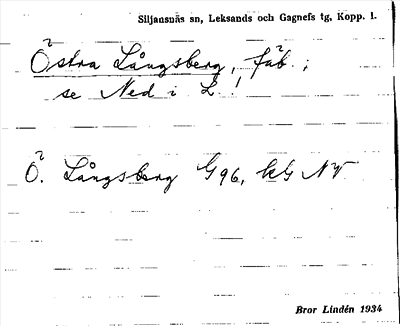 Siljansnäs sn, Leksands och Gagnefs tg, Kopp. l.
Östra Långsberg, fäb.;
se Ned i L.
Ö. Långsberg G96, kG NV
Bror Lindén 1934